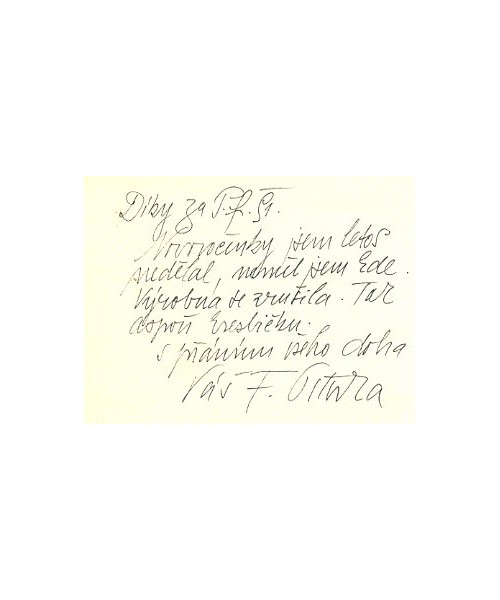 Díky za P.f. 51.
Novoročenky jsem letos
nedělal, neměl jsem kde.
Výrobna se zrušila. Tak
aspoň kresbičku.
S přáním všeho dobra
Váš F.